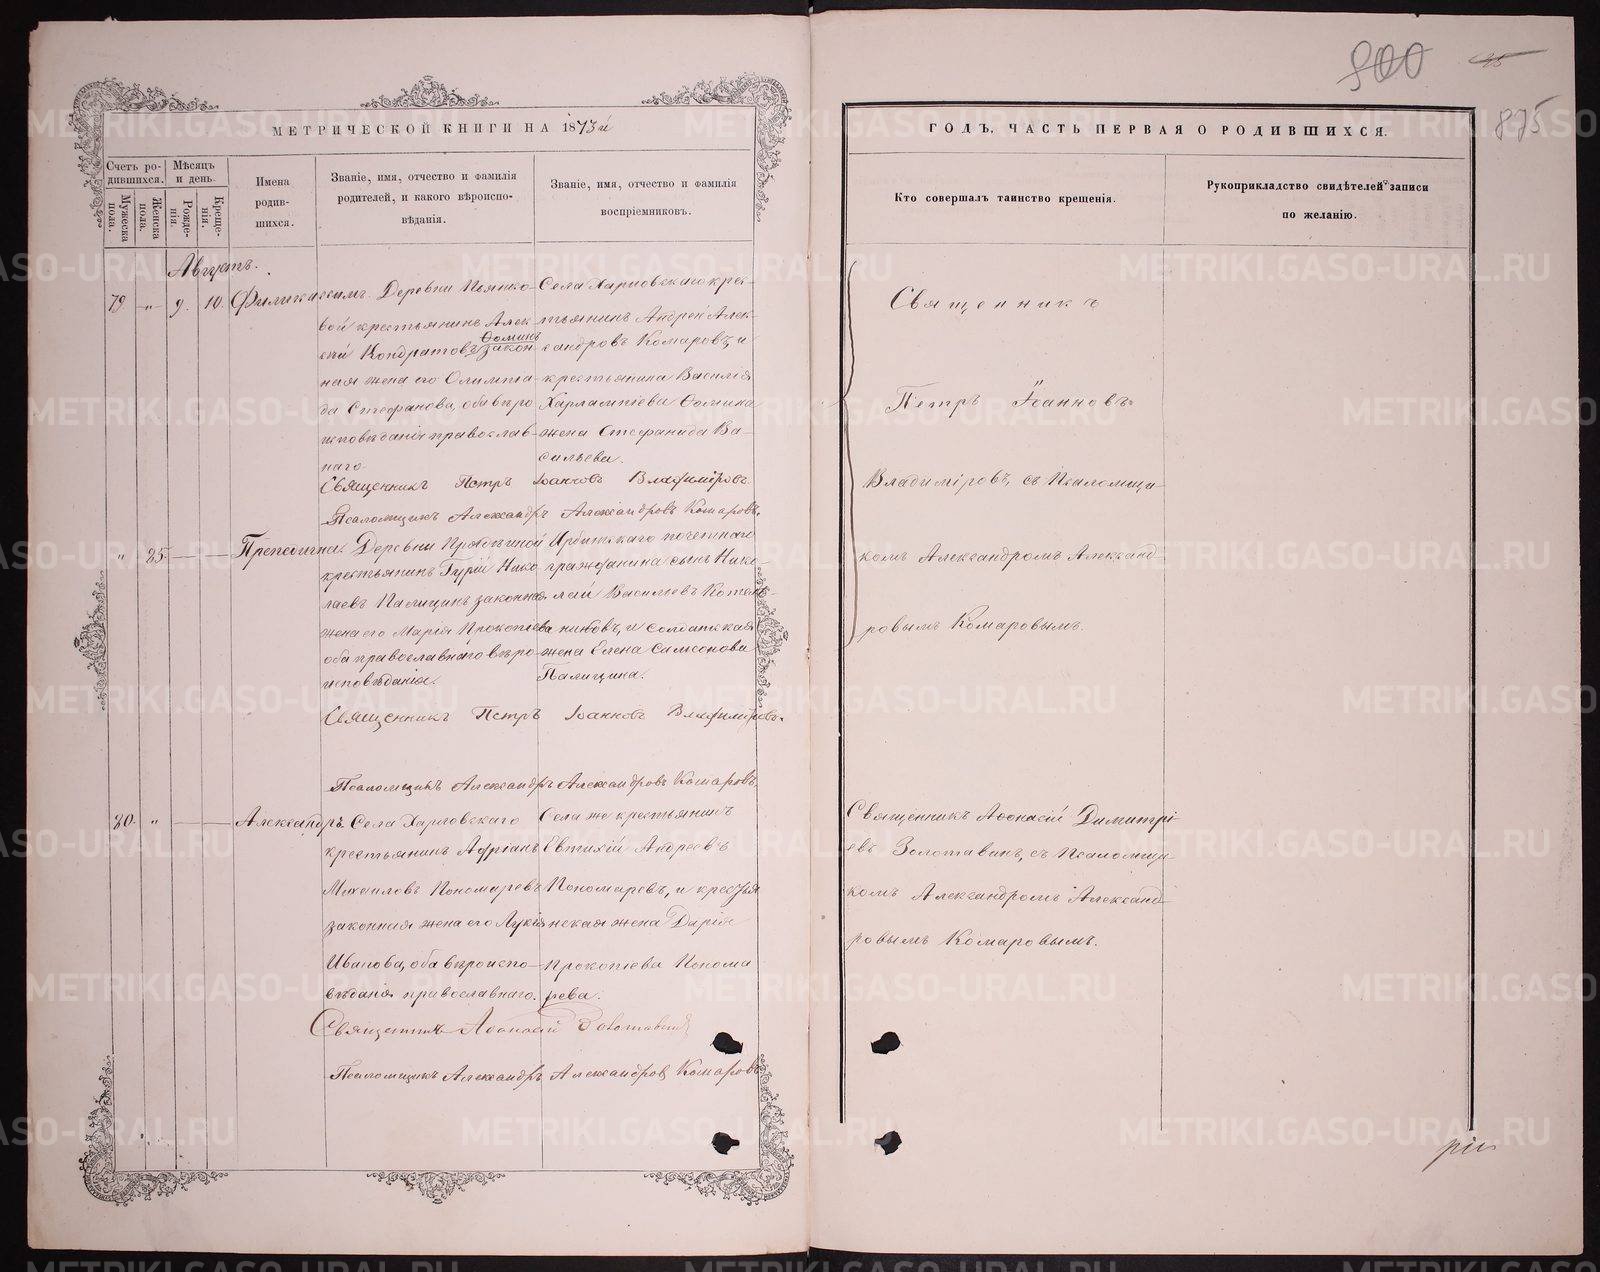 900
875
МЕТРИЧЕСКОЙ КНИГИ НА 1873й
Счетъ ро-
дившихся.
Мѣсяцъ
и день.
Мужеска
пола.
Женска
пола.
Рожде-
нія.
Креще-
нія.
Имена
родив-
шихся.
Званіе, имя, отчество и фамилія
родителей, и какого вѣроиспо-
вѣданія.
Званіе, имя, отчество и фамилія
воспріемниковъ.
Августъ.
79 " 9. 10.
Деревни Пьянко-
вой крестьянинъ Алек-
сѣй Кондратовъ Ѳоминъ закон-
ная жена его Олимпіа-
да Стефанова, оба вѣро-
исповѣданія православ-
наго.
Села Харловскаго крес-
тьянинъ Андрей Алек-
сандровъ Комаровъ, и
крестьянина Василія
Харлампіева Ѳомина
жена Стефанида Ва-
сильева.
Священникъ Петръ Іоанновъ Владиміровъ
Псаломщикъ Александръ Александровъ Комаровъ.
" 85. — —
Деревни
крестьянинъ Гурій Нико-
лаевъ Палицинъ законная
жена его Марія Прокопіева
оба православнаго вѣро-
исповѣданія.
Ирбитскаго почетнаго
гражданина сынъ Нико-
лай Васильевъ Котель-
никовъ, и солдатская
жена Елена Самсонова
Палицина.
Священникъ Петръ Іоанновъ Владиміровъ.
Псаломщикъ Александръ Александровъ Комаровъ.
80. " — —
Александръ.
Села Харловскаго
крестьянинъ Адріанъ
Михаиловъ Пономаревъ
законная жена его Лукія
Иванова, оба вѣроиспо-
вѣданія православнаго.
Села же крестьянинъ
Евтихій Андреевъ
Пономаревъ, и крестья
нская жена Дарія
Прокопіева Понома
рева.
Священникъ Аѳонасій Золотавинъ
Псаломщикъ Александръ Александровъ Комаровъ
ГОДЪ, ЧАСТЬ ПЕРВАЯ О РОДИВШИХСЯ.
Кто совершалъ таинство крещенія.
Рукоприкладство свидѣтелей записи
по желанію.
Священникъ
Петръ Іоанновъ
Владиміровъ, съ Псаломщи-
комъ Александромъ Александ-
ровымъ Комаровымъ.
Священникъ Аѳонасій Димитрі-
евъ Золотавинъ, съ Псаломщи-
комъ Александромъ Александ-
ровымъ Комаровымъ.
METRIKI.GASO-URAL.RU